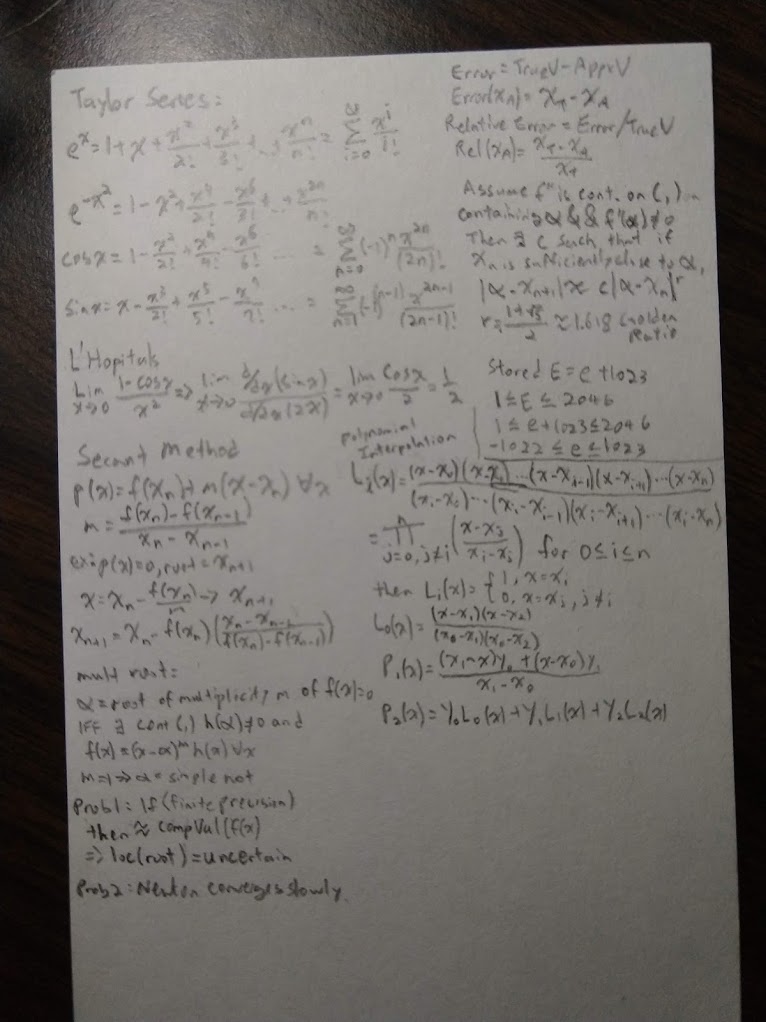 Taylor Series:
e^x = 1 + x + x^2/2! + x^3/3! + ... x^n/n! = ∑_{i=0}^{∞} x^i/i!
e^{-x^2} = 1 - x^2 + x^4/2! - x^6/3! + ... x^{2n}/n!
cosx = 1 - x^2/2! + x^4/4! - x^6/6! ... = ∑_{n=0}^{∞} (-1)^n x^{2n}/(2n)!
sinx = x - x^3/2! + x^5/5! - x^7/7! ... = ∑_{n=1}^{∞} (-1)^{(n-1)} x^{2n-1}/(2n-1)!
L'Hopitals
Lim_{x→0} (1-cosx)/x^2 => lim_{x→0} d/dx(sinx) / d/dx(2x) = lim_{x→0} cosx/2 = 1/2
Secant Method
p(x) = f(x_n) + m(x-x_n) ∀x
m = (f(x_n) - f(x_{n-1}))/(x_n - x_{n-1})
p(x)=0, root = x_{n+1}
x = x_n - f(x_n)/m → x_{n+1}
x_{n+1} = x_n - f(x_n) ((x_n - x_{n-1})/(f(x_n) - f(x_{n-1})))
mult root:
α = root of multiplicity m of f(x)=0
IFF ∃ cont (,) h(α)≠0 and
f(x) = (x-α)^m h(x) ∀x
m=1 → α = simple
Prob1: If (finite precision)
then ≈ compVal(f(x)
=> loc(root) = uncertain
Prob2: Newton converges slowly
Error = TrueV - ApprV
Error(x_A) = x_T - x_A
Relative Error = Error/TrueV
Rel(x_A) = (x_T - x_A)/x_T
Assume f" is cont. on (,)
containing α && f'(α) ≠ 0
Then ∃ C such that if
x_n is sufficiently close to α,
|α - x_{n+1}| ≈ c|α - x_n|^r
r = (1+√5)/2 ≈ 1.618 Golden
Ratio
Stored E = e + 1023
1 ≤ E ≤ 2046
1 ≤ e + 1023 ≤ 2046
-1022 ≤ e ≤ 1023
Polynomial
Interpolation
L_i(x) = (x-x_0)(x-x_1)...(x-x_{i-1})(x-x_{i+1})...(x-x_n) / (x_i-x_0)...(x_i-x_{i-1})(x_i-x_{i+1})...(x_i-x_n)
= ∏_{j=0, j≠i}^{n} ((x-x_j)/(x_i-x_j)) for 0≤i≤n
then L_i(x) = {1, x=x_i
0, x=x_j, j≠i
L_0(x) = (x-x_1)(x-x_2)/(x_0-x_1)(x_0-x_2)
P_1(x) = ((x_1-x)y_0 + (x-x_0)y_1)/(x_1-x_0)
P_2(x) = y_0L_0(x) + y_1L_1(x) + y_2L_2(x)